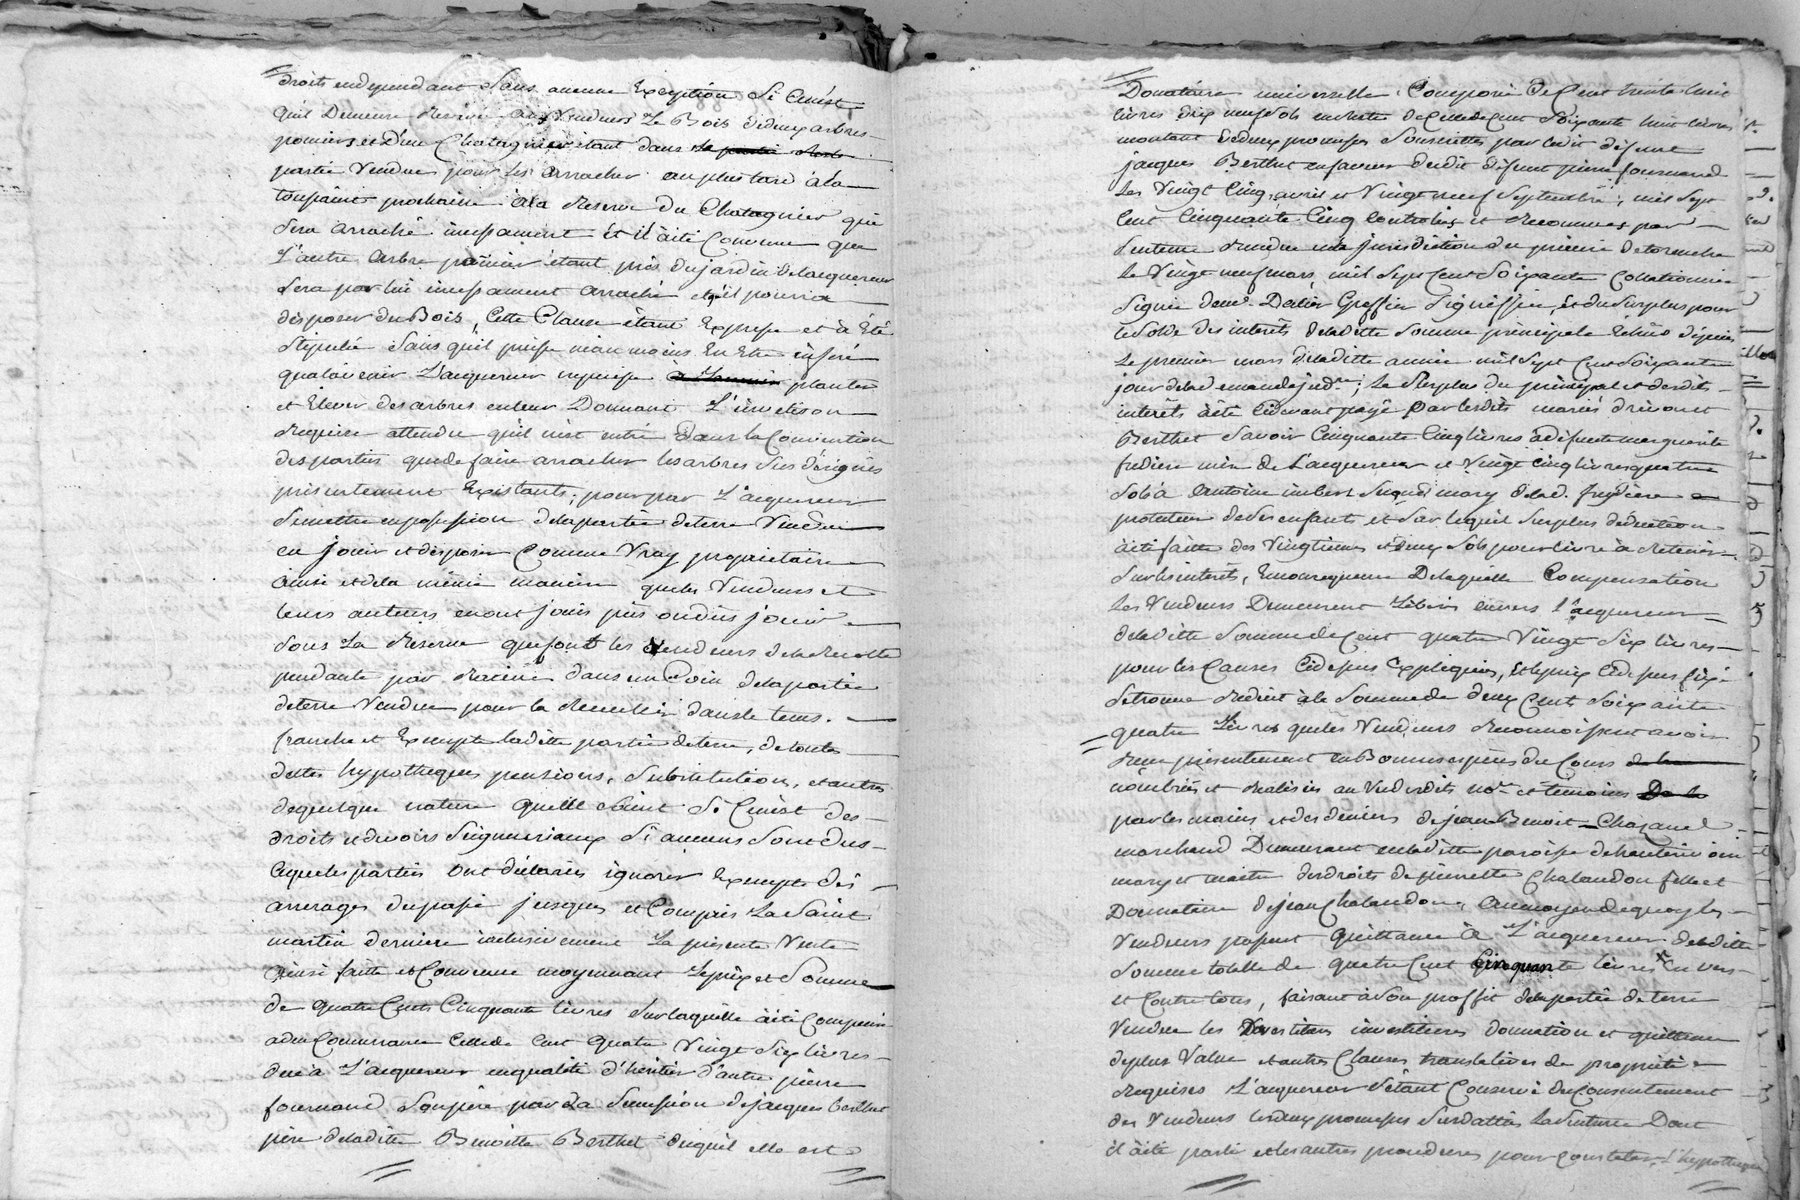 droits independant sans aucune Exception Si Cenest
quil Demeure Reservé aux Vendeurs Le Bois dedeux arbres
pomiers et d'un Chatagnier étant dans
partie Vendue pour les arracher auplustard àla
toussaint prochaine àla Reserve du Chatagnier qui
sera arraché incessament et il àété Convenu que
L'autre arbre pomier étant près dujardin delacquereur
sera par lui incessament arraché et qu'il pourra
disposer du Bois, Cette Clause étant Expresse et à été
stipulée sans quil puisse nean moins En Etre inferé
qualavenir L'acquereur ne puisse planter
et Elever des arbres enleur Donnant L'invetison
Requise attendu quil n'est entré Dans la Convention
des parties quede faire arracher les arbres sus désignés
présentement Existants; pour par L'acquereur
Semettre enpossession delapartie deterre Vendue
en jouir et disposer Comme Vray proprietaire
ainsi et dela même maniere queles Vendeurs et
leurs auteurs enont jouis pûs oudûs jouir
sous La Reserve quefont les Vendeurs dela Recolte
pendante par Racine dans un Coin delapartie
deterre Vendue pour la Recueillir dansle tems.
franche et Exempte ladite partie deterre, detoutes
dettes hypotheques pensions, substitution, et autres
dequelque nature quelle soient Si Cenest des
droits et devoirs Seigneuriaux Si aucuns sont dus
lequelesparties ont déclarées ignorer Exempte des
arrerages dupassé jusques et Compris La Saint
martin derniere inclusivement La présente Vente
ainsi faitte et Convenue moyennant Leprix et Somme
de quatre Cents Cinquante livres surlaquelle àété Compensée
adue Concurrence Cellede Cent quatre Vingt Six livres
due à L'acquereur enqualité d'héritier d'autre pierre
fournand Sonpère par La Succession dejacques berthet
père deladite Benoitte Berthet duquel elle est
Donataire universelle Composée De Cent trente huit
livres dix neuf sols enreste de Cellede Cent Soixante huit livres
montant dedeux promesses Souscrittes par ledit défunt
jacques Berthet enfaveur dudit défunt pierre fournand
Les Vingt Cinq avril et Vingt neuf Septembre, mil Sept
Cent Cinquante Cinq Controlées et Reconnues par
Sentence Rendue enla jurisdiction du
Le Vingt neuf mars mil Sept Cent Soixante Collationnée
Signée Greffier Signiffiée, Et du Surplus pour
le Solde des interêts deladitte Somme principale Echûs dépuis
Le premier mars deladitte année mil Sept Cent Soixante
jour dela demande jud.re; Le Surplus du principal et desdits
interêts àété Cidevant payé par lesdits mariés drivon et
Berthet Savoir Cinquante Cinq livres àdéfunte marguerite
fredière mère de L'acquereur et Vingt Cinq livres quatre
Sols à Antoine imbert Second mary delad. fredière
protuteur desdes enfants et Sur lequel Surplus déduction
àété faitte des Vingtiemes et deux Sols pour livre à Retenir
Surles interêts, Enconsequence Delaquelle Compensation
Les Vendeurs Demeurent Libérés envers l'acquereur
deladitte Somme de Cent quatre Vingt Six livres
pour les Causes Cidessus Expliquées, Et leprix Cidessus fixé
Setrouve Reduit àla Sommede deux Cents Soixante
quatre Livres queles Vendeurs Reconnoissent avoir
Reçue présentement en Bonnes espèces du Cours
nombrées et Realisées au Vu desdits no.re et témoins
parles mains et des deniers dejean Benoit Chazaud
marchand Demeurant enladitte paroisse dehauterivoire
mary et maitre des droits de pierrette Chalandon fille et
Donataire dejean Chalandon, Aumoyen dequoy les
Vendeurs passent Quittance à L'acquereur deladitte
Somme totalle de quatre Cent Cinquante livres envers
et Contre tous, faisant àson proffit delapartie de terre
Vendue les Devestitures investitures donnation et quittance
deplus Value et autres Clauses translatives de proprieté
Requises L'acquereur s'étant Conservé du Consentement
des Vendeurs lesdeux promesses Susdattées La Sentence Dont
il àété parlé et les autres procedures pour Constater L'hypotheque